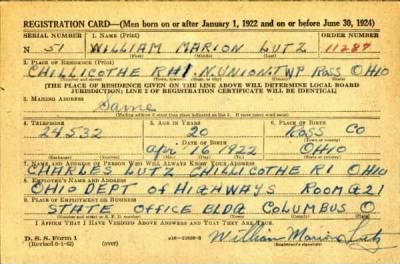 REGISTRATION CARD—(Men born on or after January 1, 1922 and on or before June 30, 1924)
SERIAL NUMBER 1. NAME (Print) ORDER NUMBER
N 51 WILLIAM MARION LUTZ 11287
2. PLACE OF RESIDENCE (Print)
CHILLICOTHE RH1 N. UNION TWP ROSS OHIO
[THE PLACE OF RESIDENCE GIVEN ON THE LINE ABOVE WILL DETERMINE LOCAL BOARD
JURISDICTION; LINE 2 OF REGISTRATION CERTIFICATE WILL BE IDENTICAL]
3. MAILING ADDRESS
Same
4. TELEPHONE 5. AGE IN YEARS 6. PLACE OF BIRTH
24532 20 Ross Co
DATE OF BIRTH
Apr 16 1922 OHIO
7. NAME AND ADDRESS OF PERSON WHO WILL ALWAYS KNOW YOUR ADDRESS
CHARLES LUTZ CHILLICOTHE R1 OHIO
8. EMPLOYER'S NAME AND ADDRESS
OHIO DEPT OF HIGHWAYS ROOM 621
9. PLACE OF EMPLOYMENT OR BUSINESS
STATE OFFICE BLDG COLUMBUS O
I AFFIRM THAT I HAVE VERIFIED ABOVE ANSWERS AND THAT THEY ARE TRUE.
D. S. S. Form 1
(Revised 6-1-42) (over)
William Marion Lutz